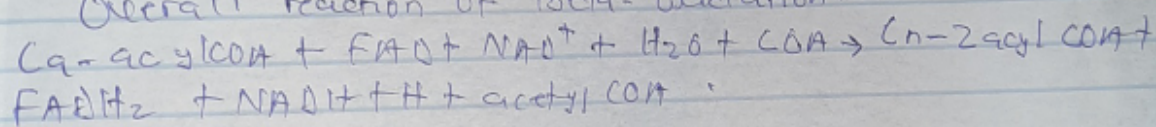 Overall reaction of
Ca-acylCOA + FAD + NAD⁺ + H₂O + COA → Cn-2 acyl COA +
FADH₂ + NADH + H + acetyl COA .